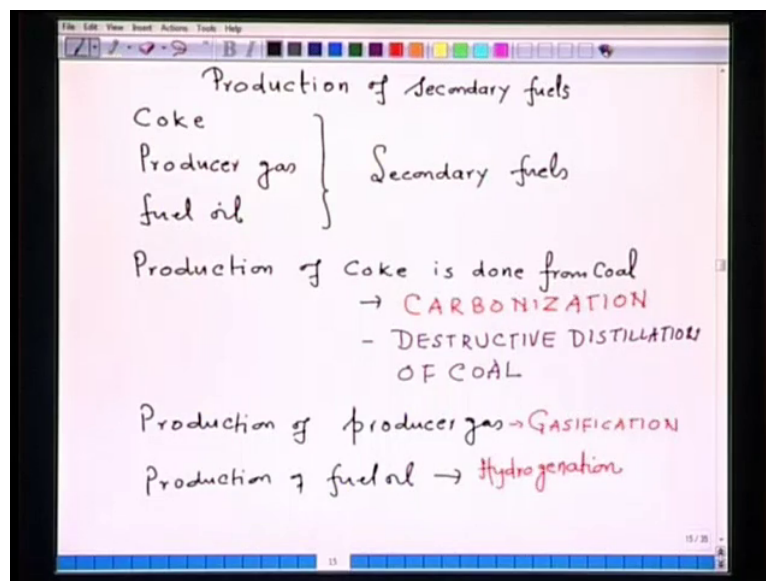 File Edit View Insert Actions Tools Help
B I
Production of secondary fuels
Coke
Producer gas
fuel oil
Secondary fuels
Production of Coke is done from Coal
→ CARBONIZATION
- DESTRUCTIVE DISTILLATION
OF COAL
Production of producer gas → GASIFICATION
Production of fuel oil → Hydrogenation
15/35
15